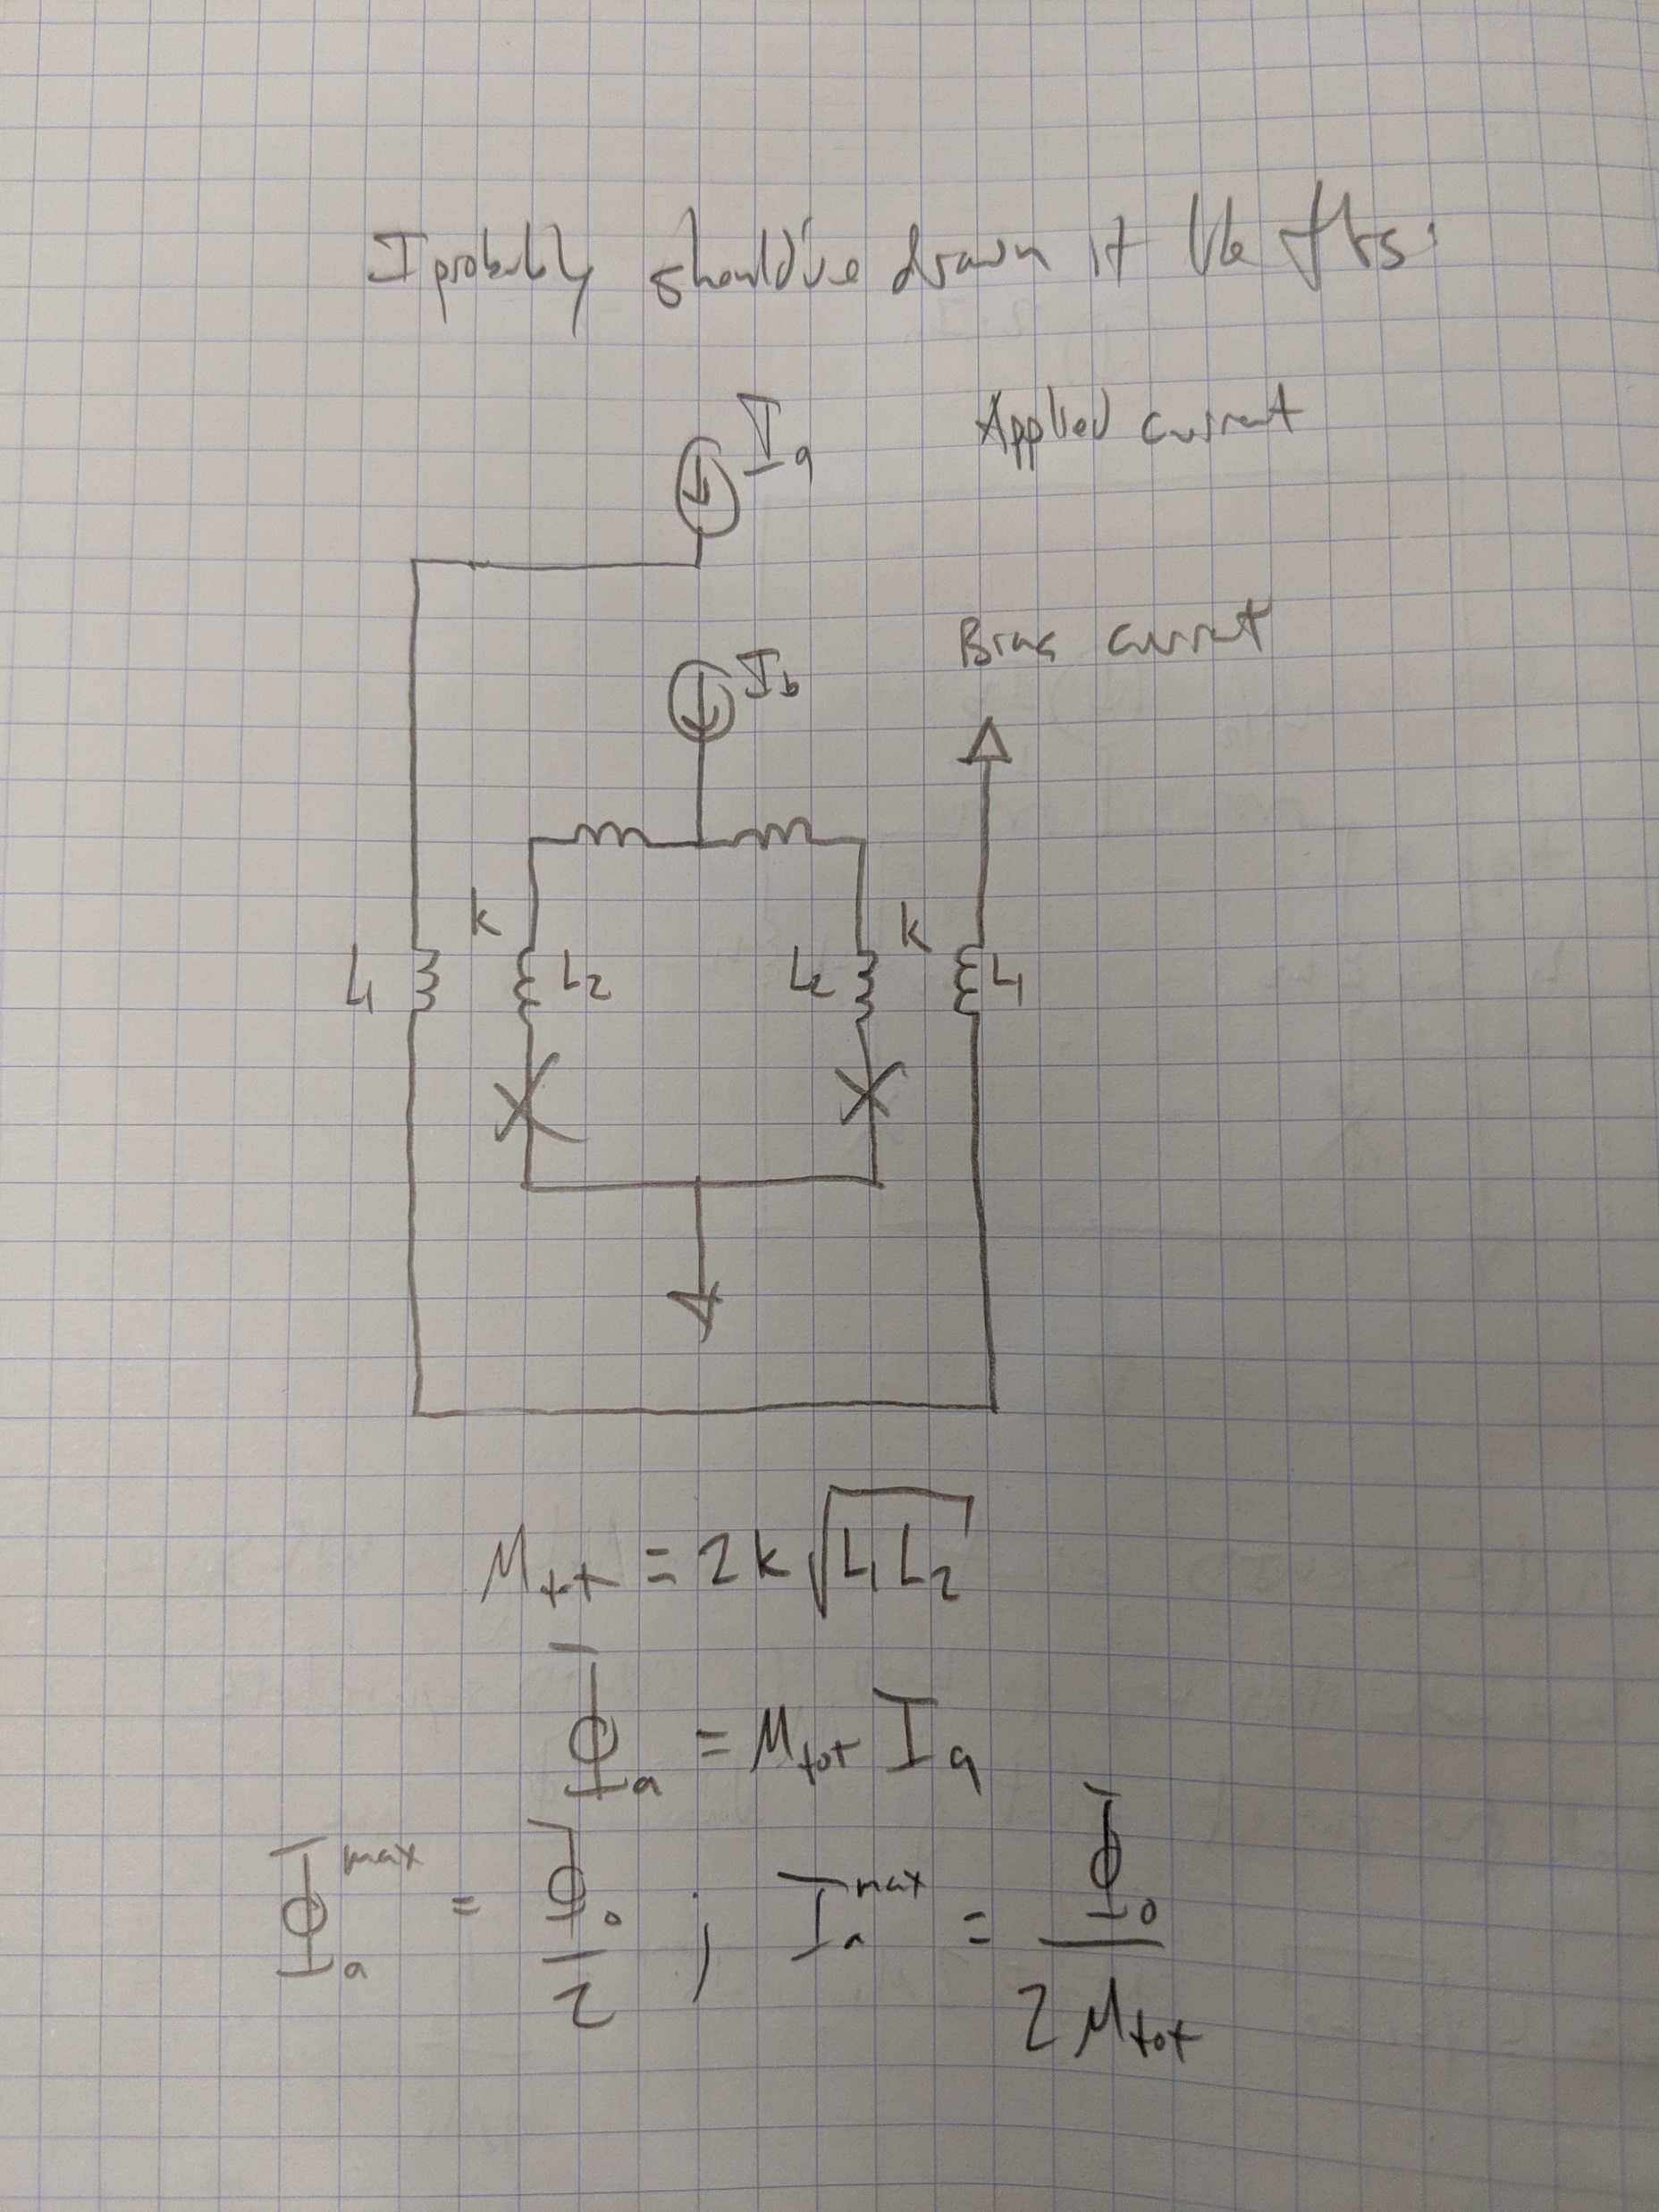 I probably should've drawn it like this:
I_a Applied current
Bias current
I_b
k k
L_1 L_2 L_2 L_1
M_tot = 2k√(L_1 L_2)
Φ_a = M_tot I_a
Φ_a^max = Φ_0/2 ; I_a^max = Φ_0/(2 M_tot)